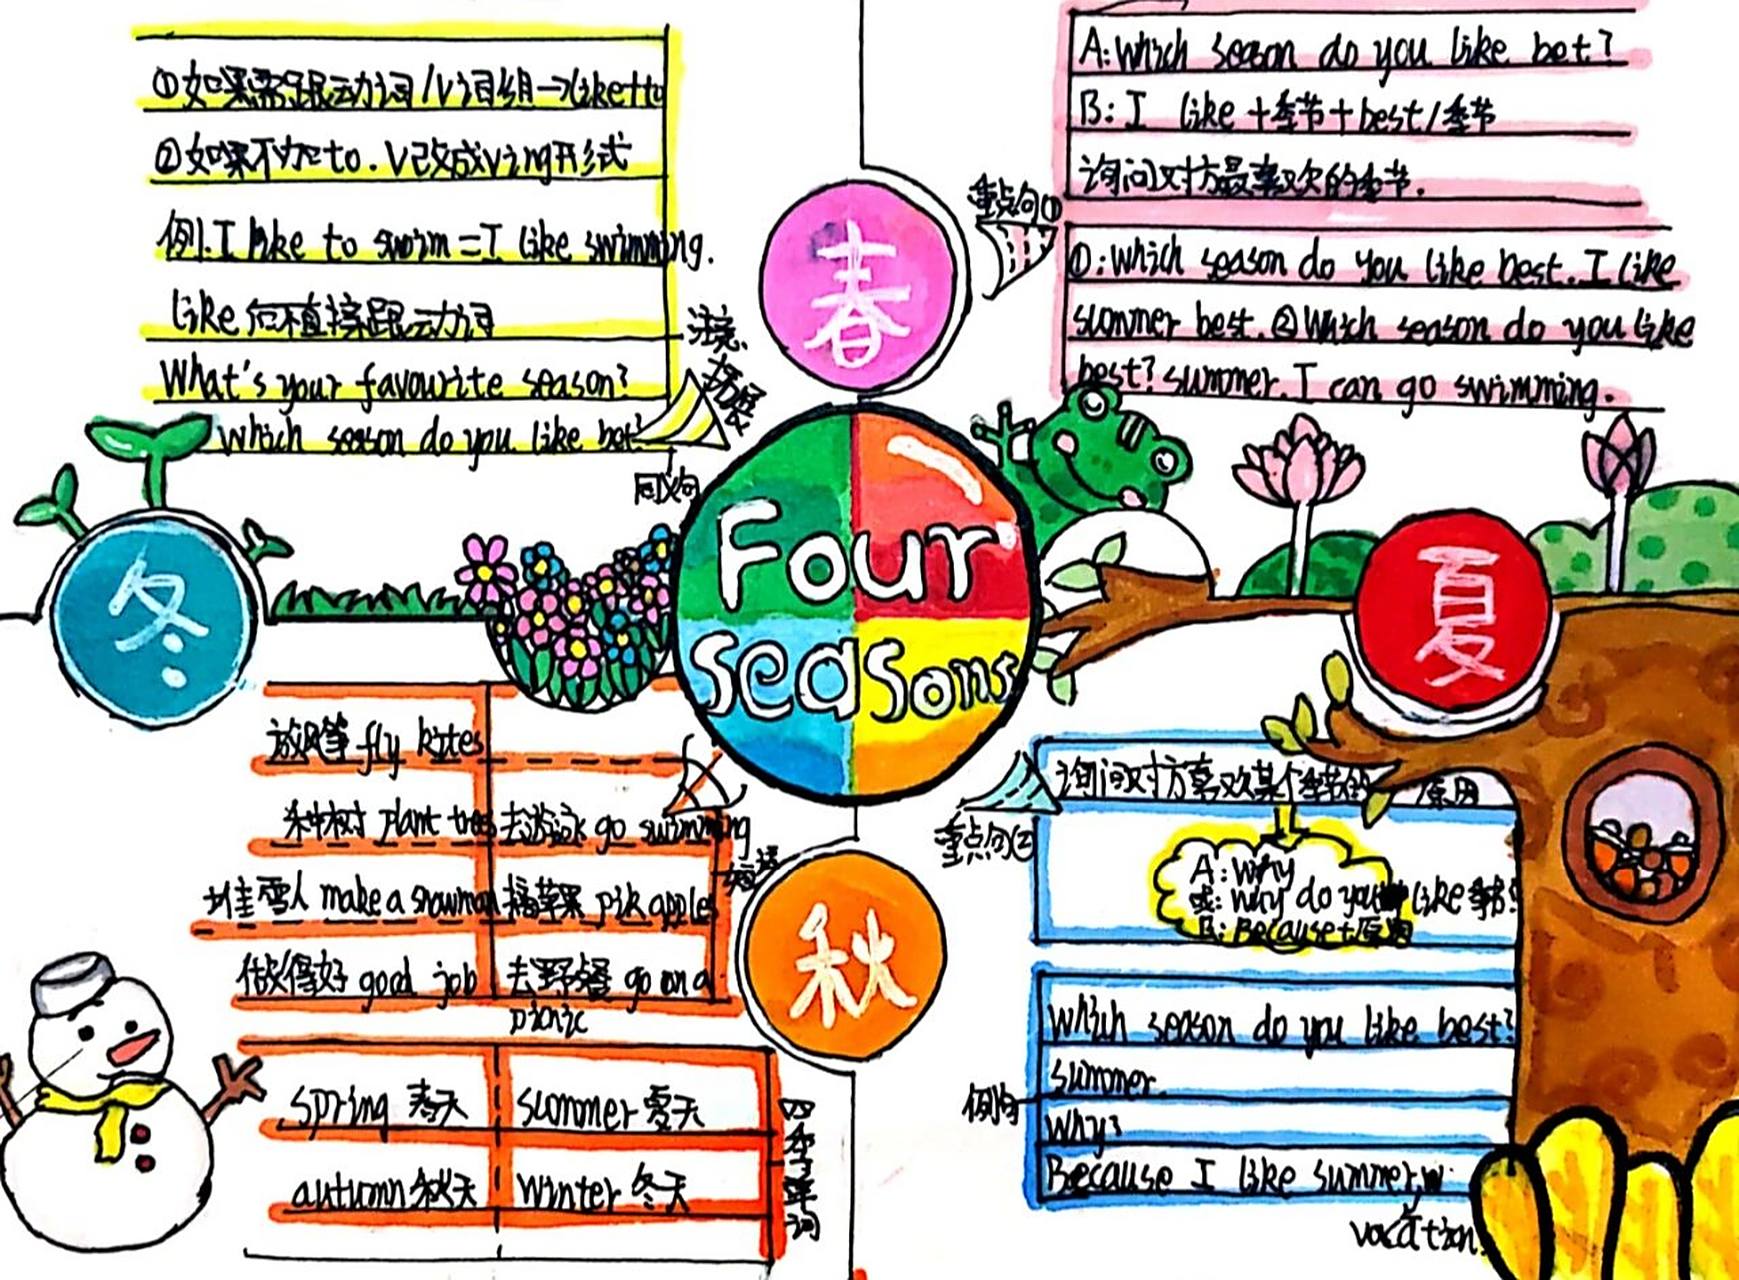 ①如果需跟动词/v词组→like to
②如果不加to.V改成ving形式
例:I like to swim=I like swimming.
like 后不直接跟动词
What's your favourite season?
Which season do you like bet?
注意
拓展
同义句
A: Which season do you like bet?
B: I like+季节+best/季节
询问对方最喜欢的季节.
重点句①
①:Which season do you like best. I like
summer best. ②Which season do you like
best? summer. I can go swimming.
春
冬
夏
秋
Four
seasons
放风筝 fly kites
种树 plant trees 去游泳 go swimming
堆雪人 make a snowman 摘苹果 pik apples
做得好 good job 去野餐 go on a
picnic
短语
spring 春天 summer 夏天
autumn 秋天 winter 冬天
四季单词
重点句②
询问对方喜欢某个季节的 原因
A: Why
或: Why do you like 季节?
B: Because+原因
例句
Which season do you like best?
summer.
Why?
Because I like summer
vacation.